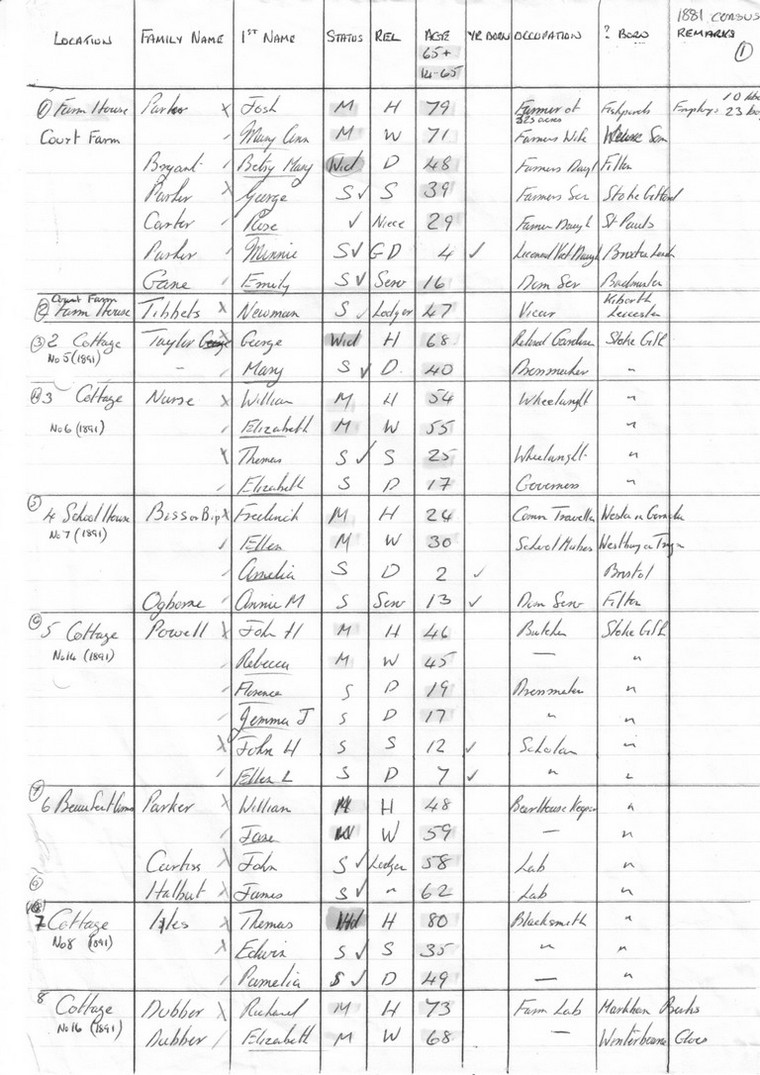 1881 CENSUS
LOCATION FAMILY NAME 1ST NAME STATUS REL AGE YR BORN OCCUPATION ? BORN REMARKS
65+ ①
14-65
① Farm House Parker x Josh M H 79 Farmer of Fishponds Employs: 10
325 acres 23
Court Farm Mary Ann M W 71 Farmers Wife Som
Bryant Betsy Mary Wid D 48 Farmers Daugt Filton
Parker x George S ✓ S 39 Farmers Son Stoke Gifford
Carter Rose ✓ Niece 29 Farmer Daugh St Pauls
Parker Minnie S ✓ GD 4 ✓ Licensed Vict Daugh
Gane Emily S ✓ Serv 16 Dom Ser Badminton
② Court Farm
Farm House Tibbets x Newman S ✓ Lodger 47 Vicar Kibworth
Leicester
③ 2 Cottage Taylor x George Wid H 68 Retired Gardener Stoke Gifd
No 5 (1891) - Mary S ✓ D. 40 Dressmaker "
④ 3 Cottage Nurse x William M H 54 Wheelwright "
No 6 (1891) Elizabeth M W 55 "
x Thomas S ✓ S 25 Wheelwright "
Elizabeth S D 17 Governess "
⑤
4 School House Biss or Bip x Frederick M H 24 Comm Traveller
No 7 (1891) Ellen M W 30 School Mistress Westbury on Trym
Amelia S D 2 ✓ Bristol
Ogborne Annie M S Serv 13 ✓ Dom Serv Filton
⑥
5 Cottage Powell x John H M H 46 Butcher Stoke Gifd
No 14 (1891) Rebecca M W 45 — "
Florence S D 19 Dressmaker "
Jemima J S D 17 " "
x John H S S 12 ✓ Scholar "
Ellen L S D 7 ✓ " "
⑦
6 Beaufort Arms Parker x William M H 48 Beer House Keeper "
Jane M W 59 — "
Curtiss x John S ✓ Lodger 58 Lab "
⑨ Halbut x James S ✓ " 62 Lab "
7 Cottage Iles x Thomas Wd H 80 Blacksmith "
No 8 (1891) x Edwin S ✓ S 35 " "
Pamelia S ✓ D 49 — "
8
Cottage Dubber x Richard M H 73 Farm Lab Markham Berks
No 16 (1891) Dubber Elizabeth M W 68 — Winterbourne Glos